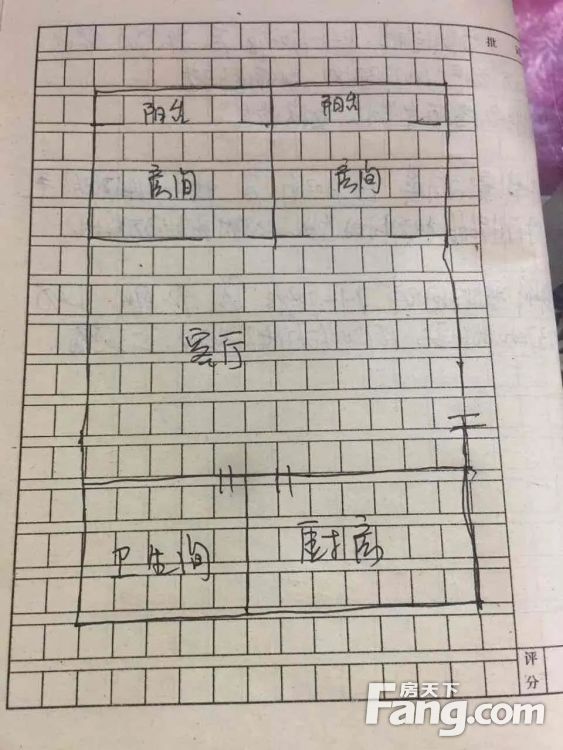 批
阳台 阳台
房间 房间
客厅
卫生间 厨房
评
分
房天下
Fang.com